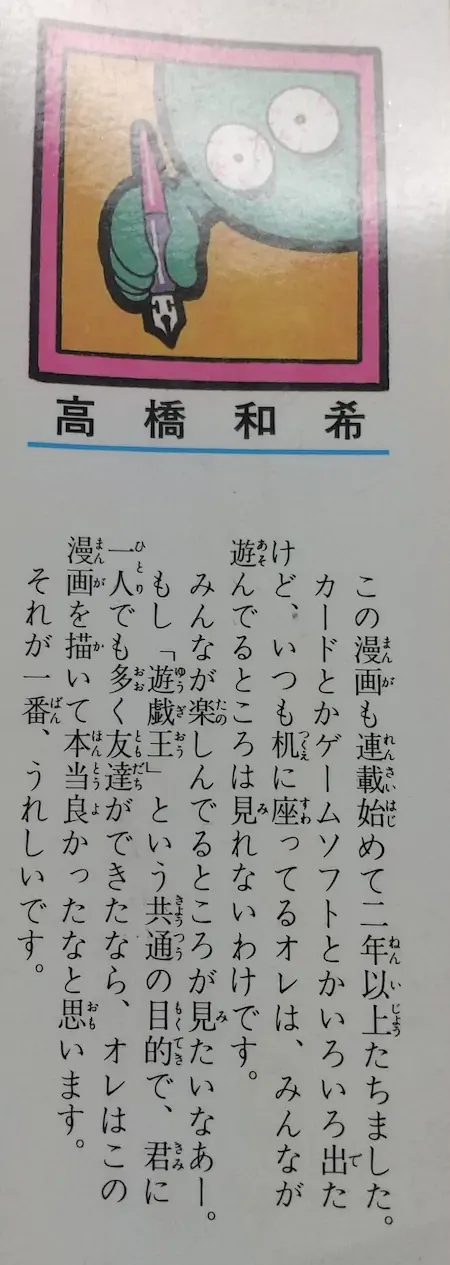 高橋和希
この漫画も連載始めて二年以上たちました。
カードとかゲームソフトとかいろいろ出た
けど、いつも机に座ってるオレは、みんなが
遊んでるところは見れないわけです。
みんなが楽しんでるところが見たいなあー。
もし「遊戯王」という共通の目的で、君に
一人でも多く友達ができたなら、オレはこの
漫画を描いて本当良かったなと思います。
それが一番、うれしいです。